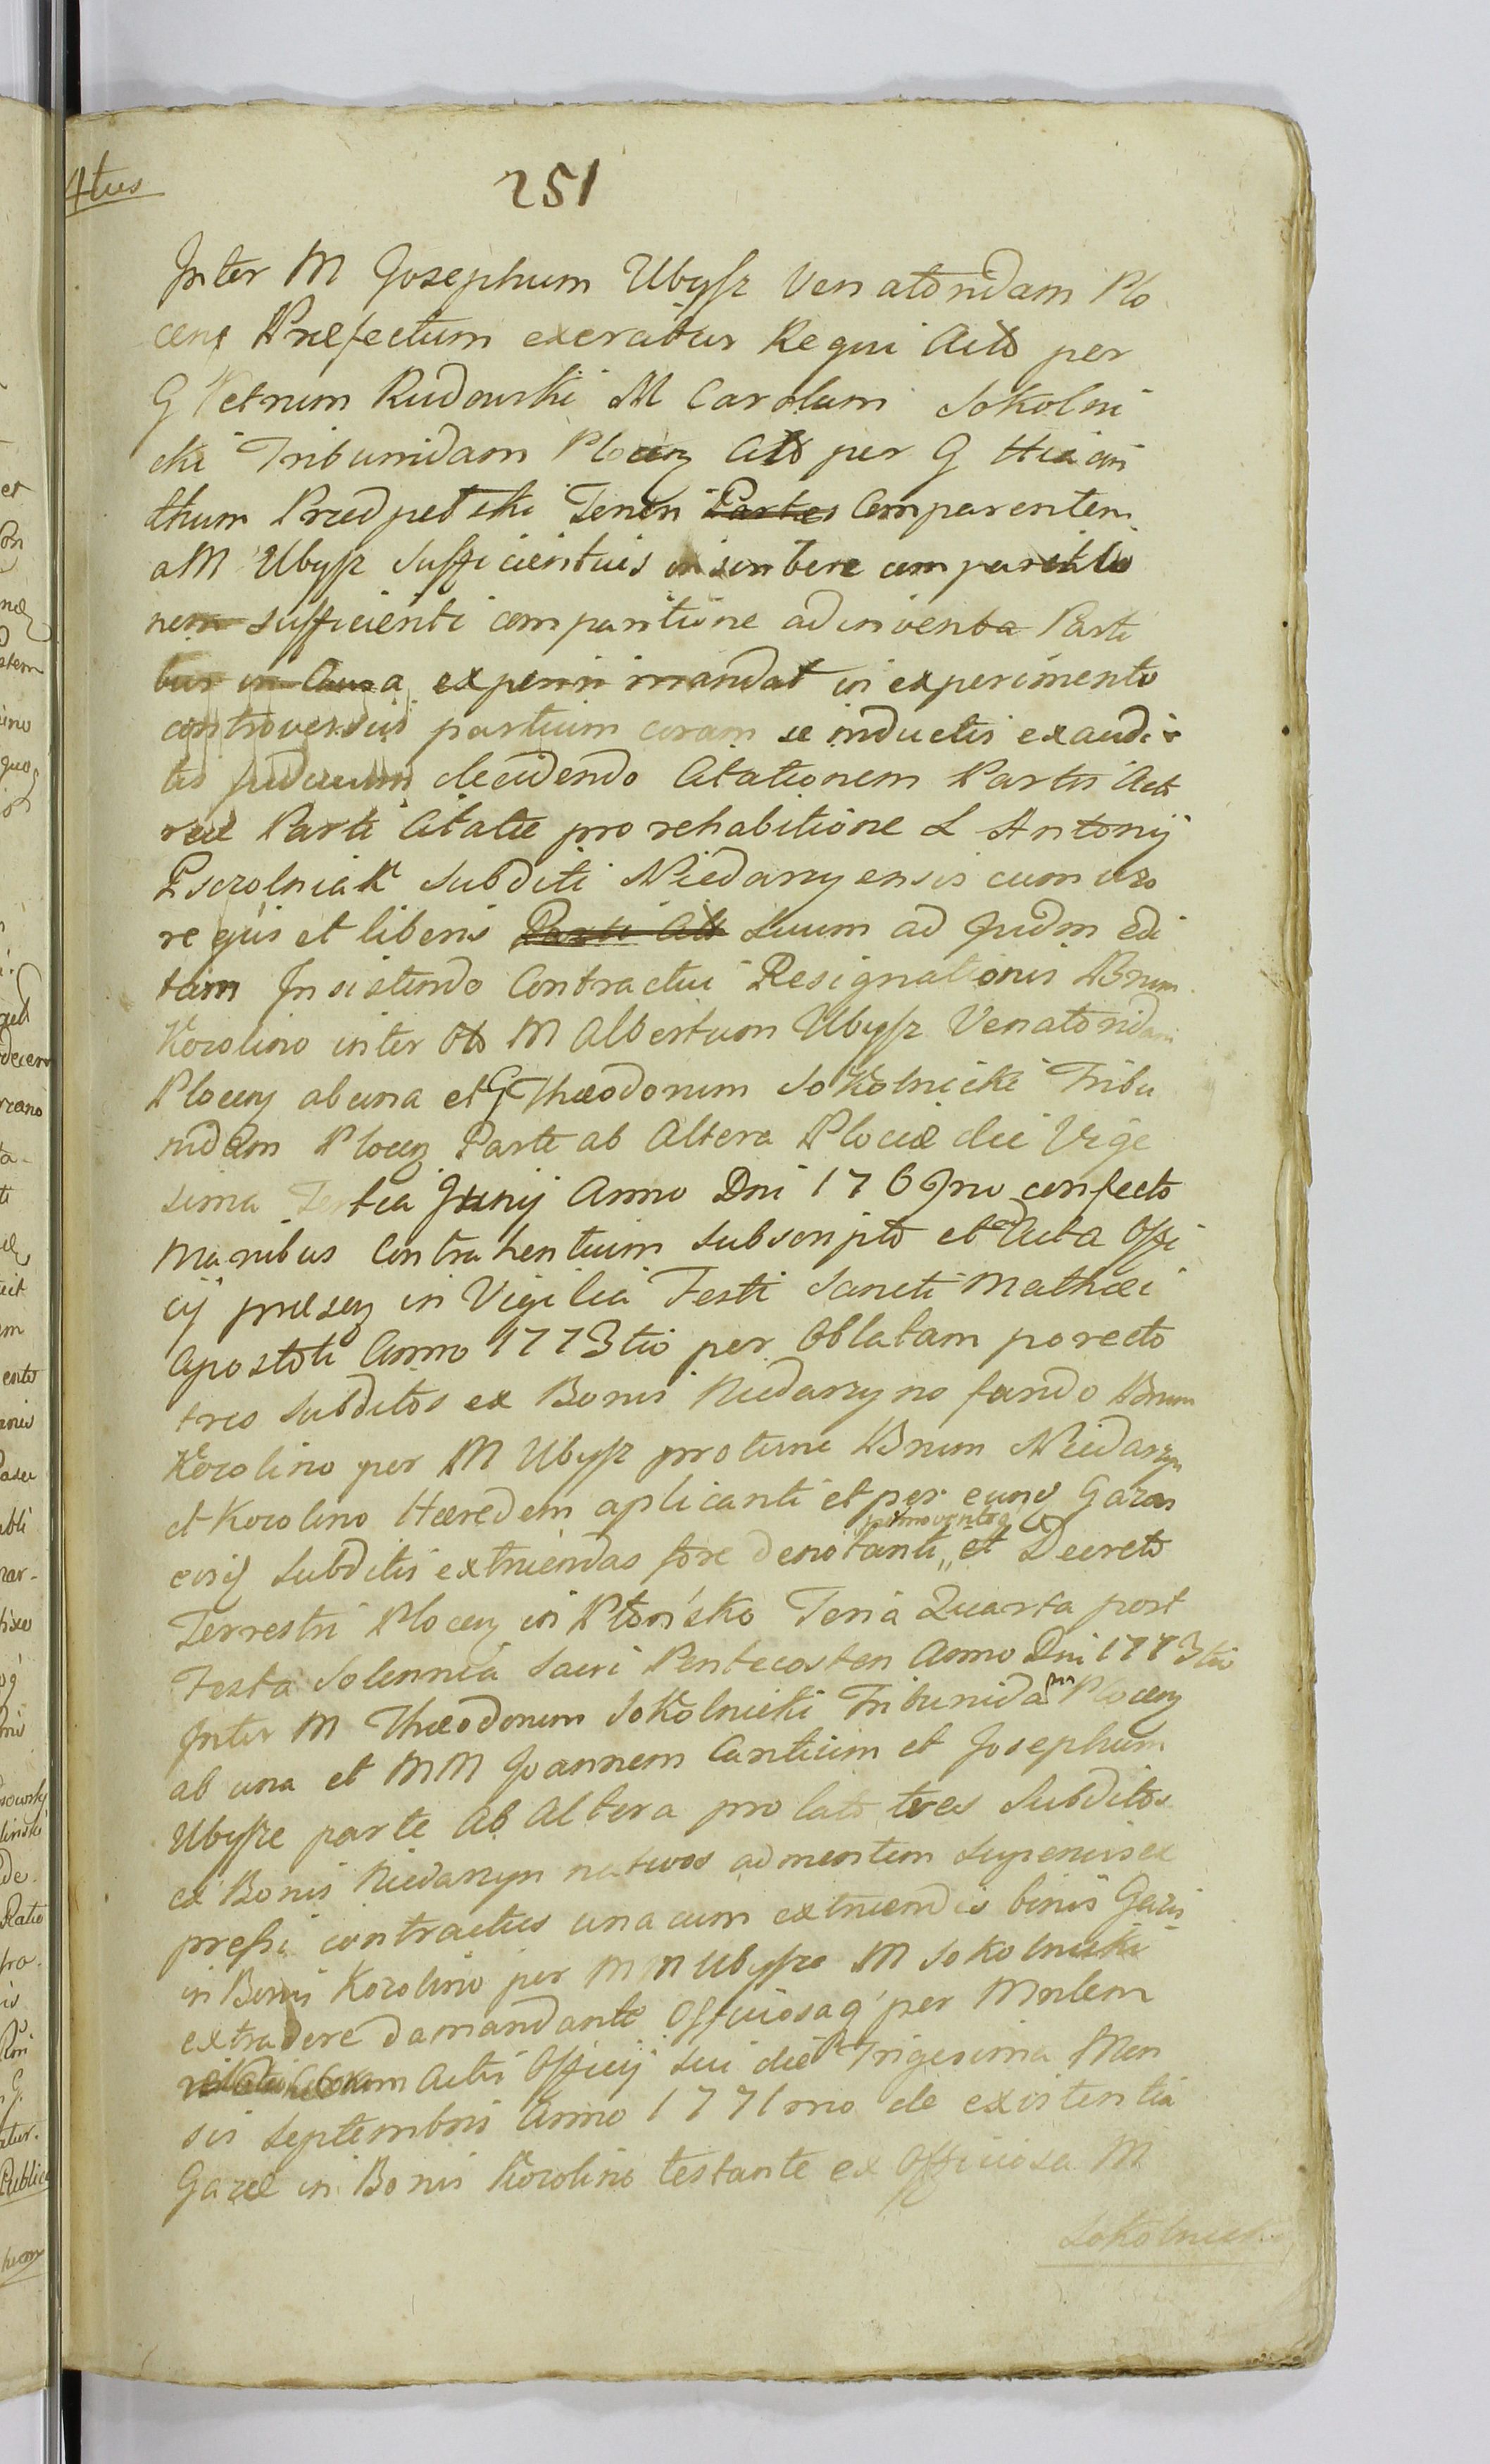 Atus
251
Inter M Josephum Ubysz Venatoridam Plo
cens Præfectum exercitus Regni Acts per
G Petrum Rudowski M Carolum Sokolni
cki Tribunidam Plocen Cits per G Hiacin
thum Przedpełski Tenen Partes Comparentem
a M Ubysz sufficientius inscribere comparitio
nem sufficienti comparitione adinventa Parti
bus in Causa experiri mandat in experimento
controversiis partium coram se inductis exaudi
tis Judicium decidendo Citationem Partis Act
reæ Parti Citatæ pro rehabitione L Antonij
Pszczolniak subditi Niedarzyensis cum uxo
re ejus et liberis Parti Act suum ad Judm edi
tam Insistendo Contractui Resignationis Bnrum
Kozolino inter M Albertum Ubysz Venatoridam
Plocen ab una et G Theodorum Sokolnicki Tribu
nidam Plocen Parte ab Altera Plociæ die Vige
sima Tertia Junij Anno Dni 176 confecto
Manibus Contrahentium subscripto et ad Acta Offi
cij præsen in Vigilia Festi Sancti Mathæi
Apostoli Anno 1773tio per Oblatam porecto
tres subditos ex Bonis Niedarzyno fundo Bnrum
Kozolino per M Ubysz protunc Bnrum Niedarzyn
et Kozolino Hæredem aplicanti et per eund Gazas
eisq subditis extruendas fore denotanti et Decreto
Terrestri Plocen in Płońsko Feria Quarta post
Festa Solennia Sacri Pentecosten Anno Dni 1773tio
Inter M Theodorum Sokolnicki Tribunidam Plocen
ab una et MM Joannem Cantium et Josephum
Ubysze parte ab Altera prolato tres Subditos
ex Bonis Niedarzyn nativos ad mentem superius ex
pressi contractus una cum extruendis binis Gazis
in Bonis Kozolino per MM Ubysze M Sokolnicki
extradere damandante Officiosaq per Mnlem
Actis Officij sui die Trigesima Men
sis Septembris Anno 1771mo de existentia
Gazæ in Bonis Kozolino testante ex Officiosa M
Sokolnicki